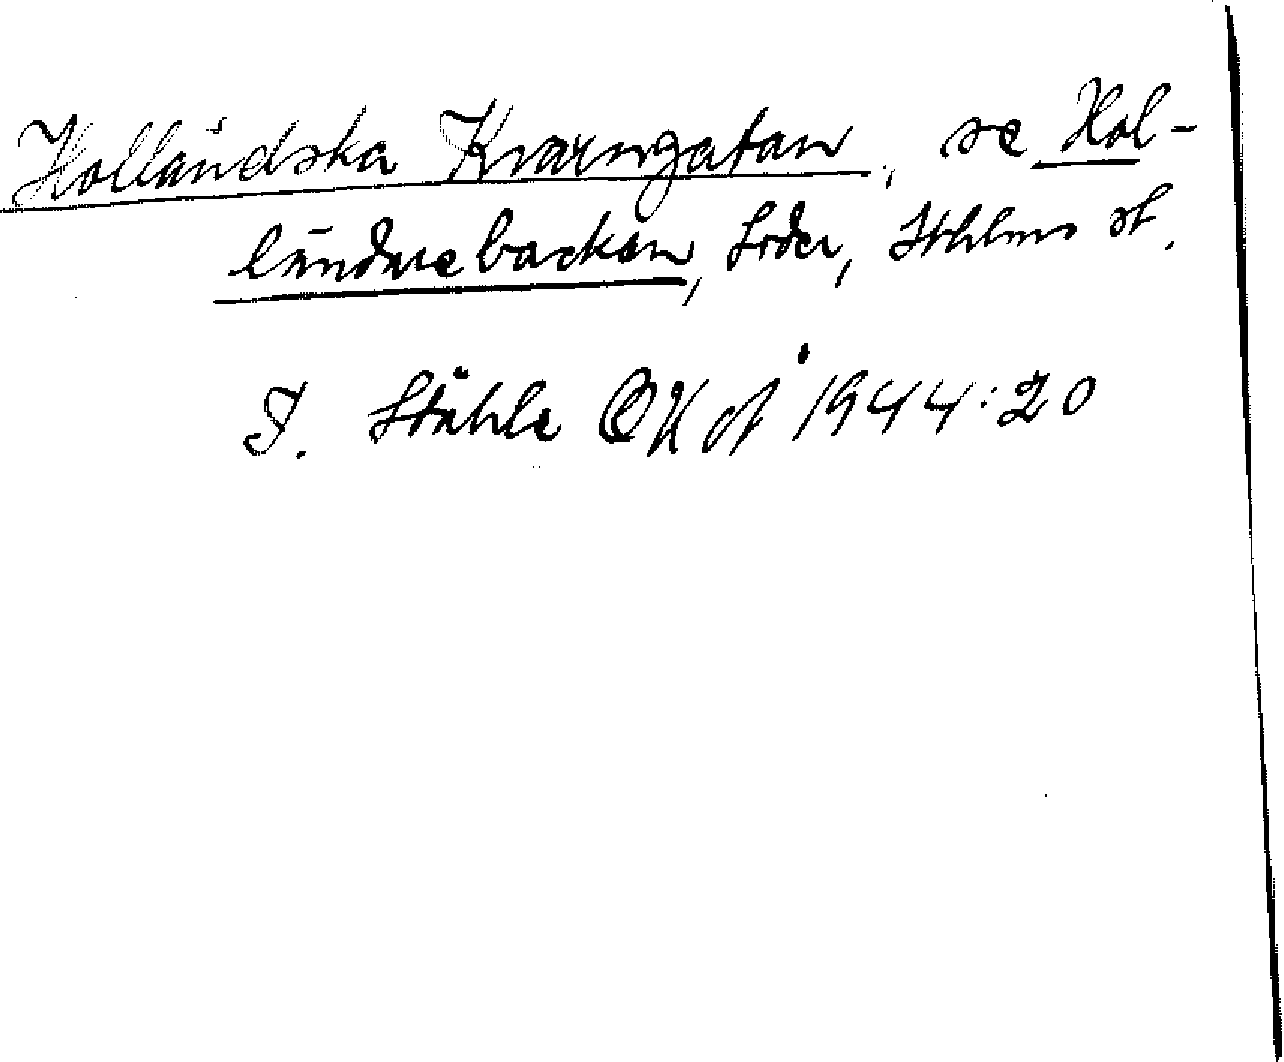 Holländska Kvarngatan, se Hol-
ländarebacken, Söder, Sthlms st.
I. Ståhle OK af 1944:20